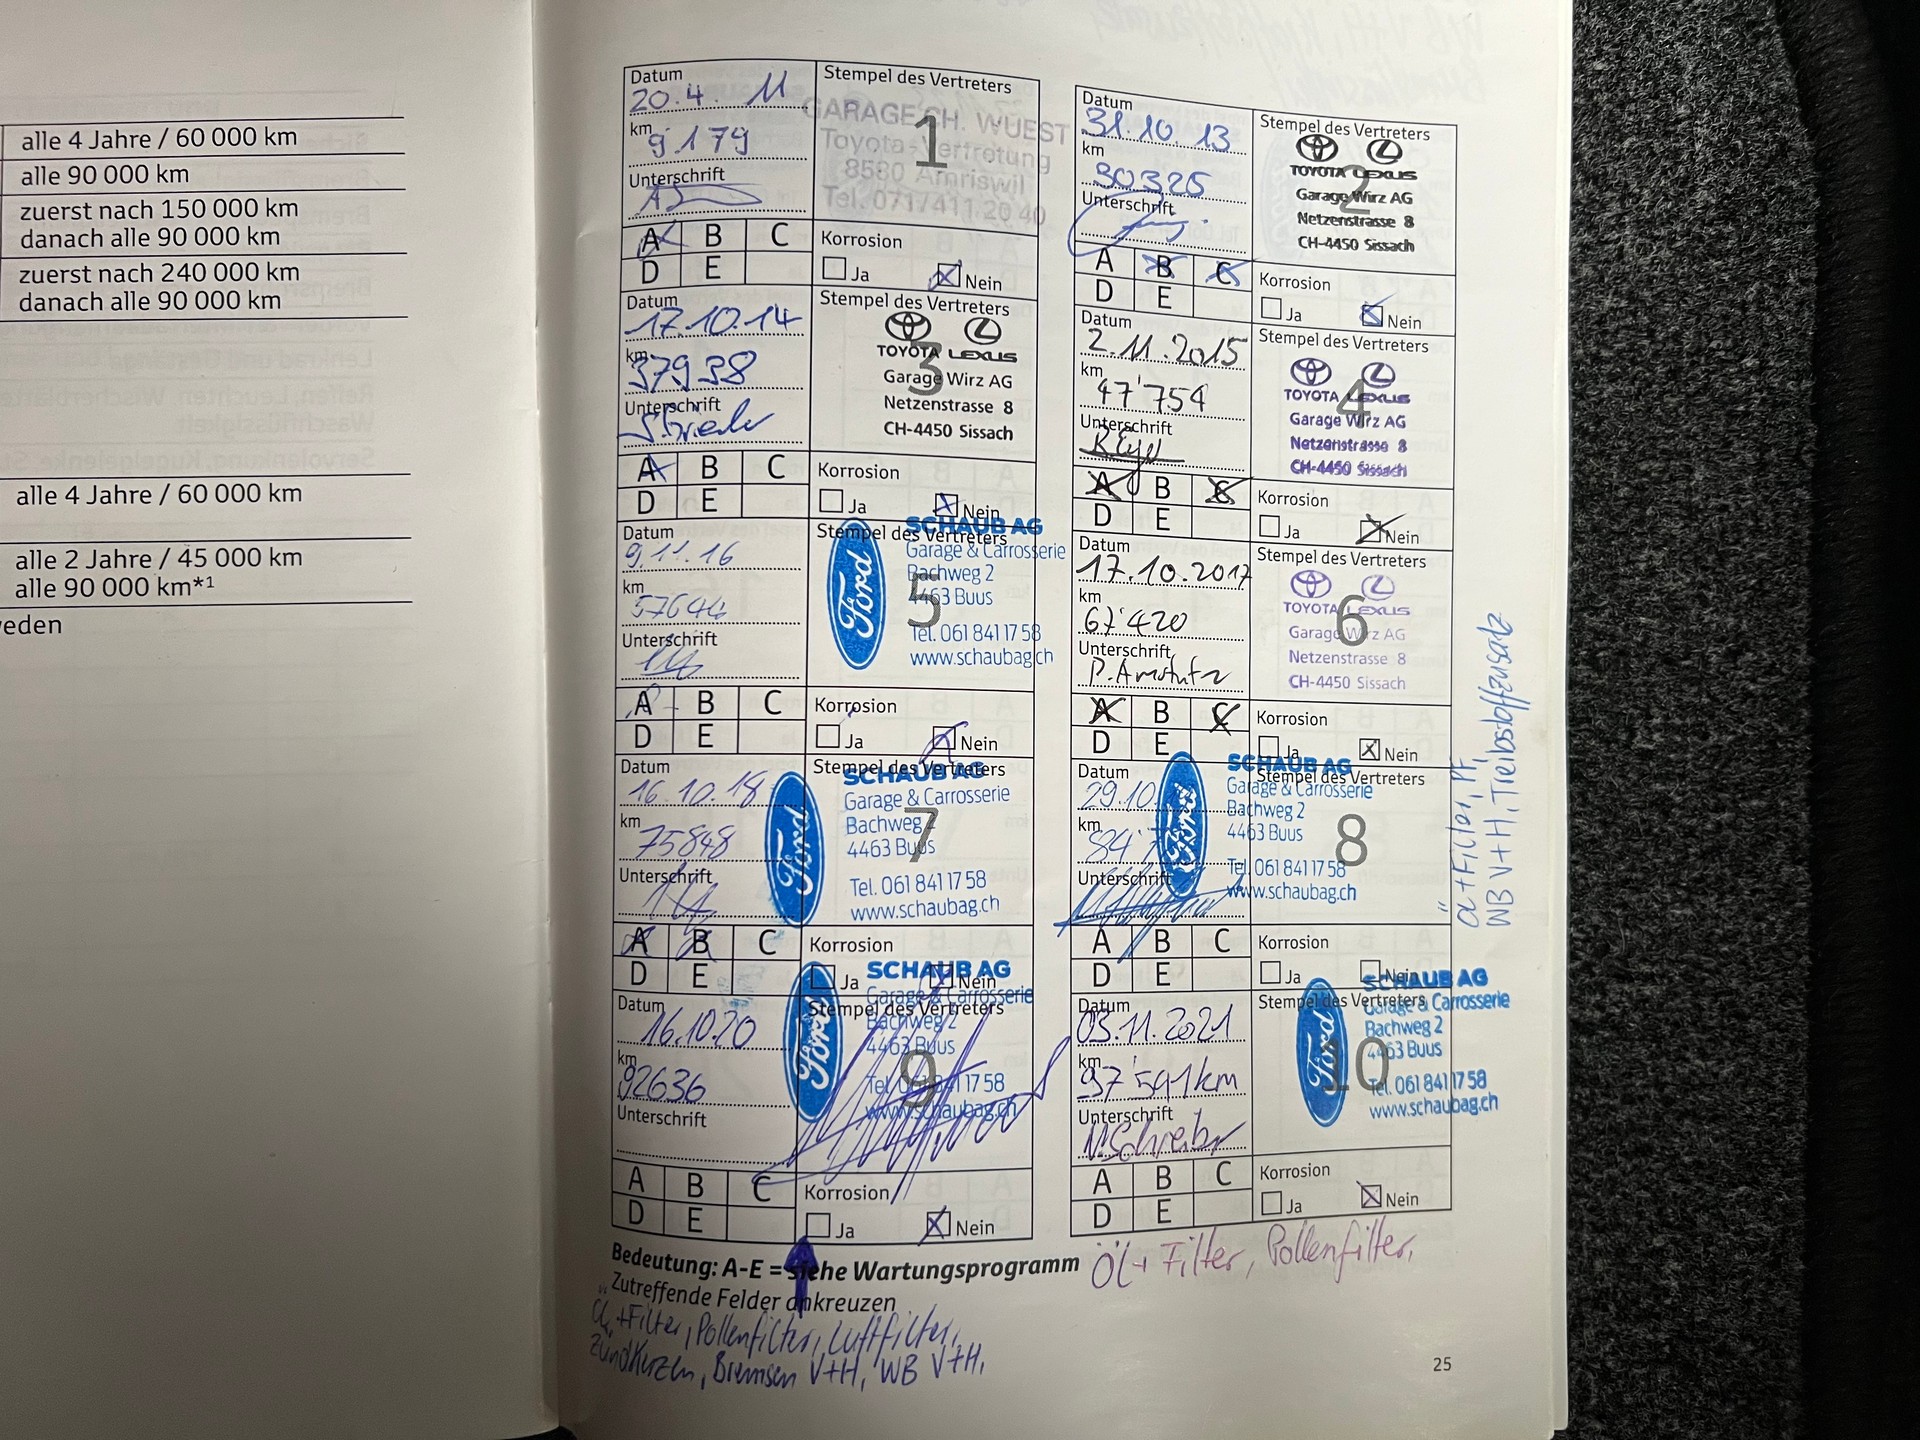 alle 4 Jahre / 60 000 km
alle 90 000 km
zuerst nach 150 000 km
danach alle 90 000 km
zuerst nach 240 000 km
danach alle 90 000 km
alle 4 Jahre / 60 000 km
alle 2 Jahre / 45 000 km
alle 90 000 km*1
eden
Datum
20.4. 11
km
9179
Unterschrift
Stempel des Vertreters
1
GARAGE CH. WUEST
Toyota-Vertretung
8580 Amriswil
Tel. 071/411 20 40
A B C
D E
Korrosion
Ja Nein
Datum
31.10.13
km
30325
Unterschrift
Stempel des Vertreters
2
TOYOTA LEXUS
Garage Wirz AG
Netzenstrasse 8
CH-4450 Sissach
A B C
D E
Korrosion
Ja Nein
Datum
17.10.14
km
37938
Unterschrift
Stempel des Vertreters
3
TOYOTA LEXUS
Garage Wirz AG
Netzenstrasse 8
CH-4450 Sissach
A B C
D E
Korrosion
Ja Nein
Datum
2.11.2015
km
47'754
Unterschrift
Stempel des Vertreters
4
TOYOTA LEXUS
Garage Wirz AG
Netzenstrasse 8
CH-4450 Sissach
A B C
D E
Korrosion
Ja Nein
Datum
9.11.16
km
57644
Unterschrift
Stempel des Vertreters
5
Ford
SCHAUB AG
Garage & Carrosserie
Bachweg 2
4463 Buus
Tel. 061 841 17 58
www.schaubag.ch
A B C
D E
Korrosion
Ja Nein
Datum
17.10.2017
km
67'420
Unterschrift
P. Amstutz
Stempel des Vertreters
6
TOYOTA LEXUS
Garage Wirz AG
Netzenstrasse 8
CH-4450 Sissach
A B C
D E
Korrosion
Ja Nein
Datum
16.10.18
km
75848
Unterschrift
Stempel des Vertreters
7
Ford
SCHAUB AG
Garage & Carrosserie
Bachweg 2
4463 Buus
Tel. 061 841 17 58
www.schaubag.ch
A B C
D E
Korrosion
Ja Nein
Datum
29.10
km
84'
Unterschrift
Stempel des Vertreters
8
Ford
SCHAUB AG
Garage & Carrosserie
Bachweg 2
4463 Buus
Tel. 061 841 17 58
www.schaubag.ch
A B C
D E
Korrosion
Ja Nein
Öl + Filter, PF,
WB V+H, Treibstoffzusatz
Datum
16.10.20
km
92636
Unterschrift
Stempel des Vertreters
9
Ford
SCHAUB AG
Garage & Carrosserie
Bachweg 2
4463 Buus
Tel. 061 841 17 58
www.schaubag.ch
A B C
D E
Korrosion
Ja Nein
Datum
03.11.2021
km
97'591 km
Unterschrift
Stempel des Vertreters
10
Ford
SCHAUB AG
Garage & Carrosserie
Bachweg 2
4463 Buus
Tel. 061 841 17 58
www.schaubag.ch
A B C
D E
Korrosion
Ja Nein
Bedeutung: A-E = siehe Wartungsprogramm
Zutreffende Felder ankreuzen
Öl + Filter, Pollenfilter,
Öl + Filter, Pollenfilter, Luftfilter,
Zündkerzen, Bremsen V+H, WB V+H,
25